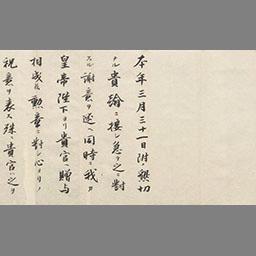 本年三月三十一日附ノ懇切
ナル貴翰ニ接シ怠ラ之ニ對
スル謝意ヲ述ヘ同時ニ我
皇帝陛下ヨリ貴官ヘ贈与
相成候勲章ニ對シ心ヨリノ
祝意ヲ表ス殊ニ貴官ハ之ヲ